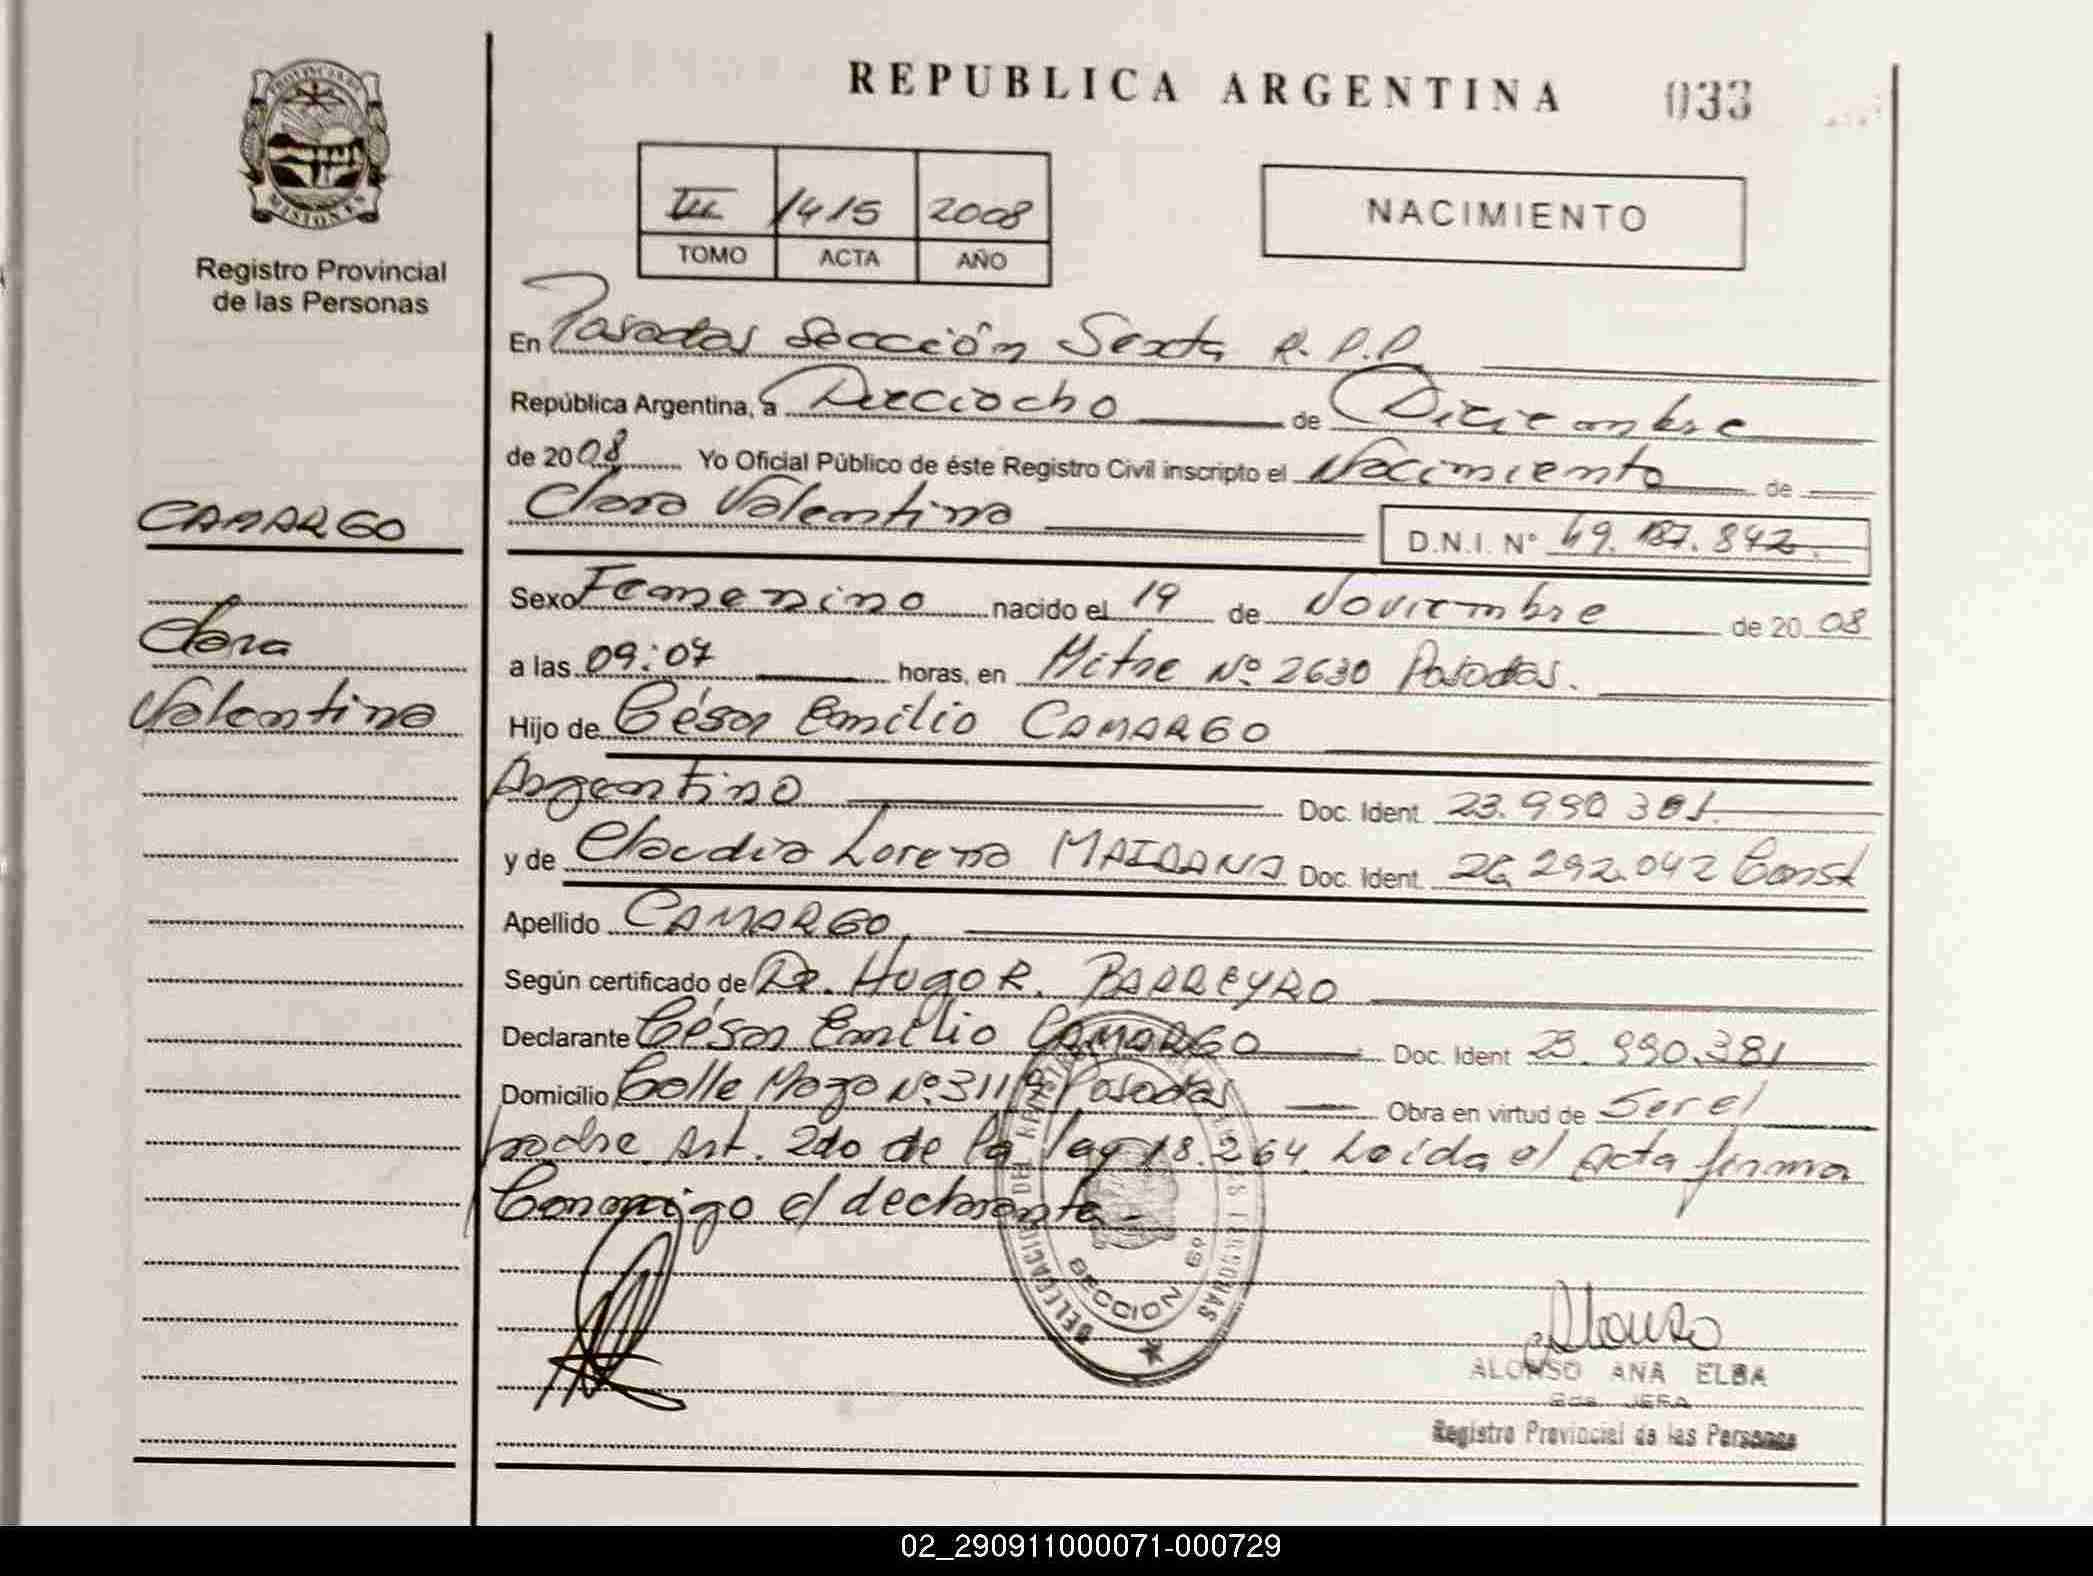 REPUBLICA ARGENTINA 033
PROVINCIA DE
MISIONES
Registro Provincial
de las Personas
III 1415 2008
TOMO ACTA AÑO
NACIMIENTO
En Posadas Sección Sexta R. P. P.
República Argentina, a Dieciocho de Diciembre
de 2008 Yo Oficial Público de éste Registro Civil inscripto el Nacimiento de
Clara Valentina D.N.I. N° 49.187.842.
CAMARGO
Clara
Valentina
Sexo Femenino nacido el 19 de Noviembre de 2008
a las 09:07 horas, en Mitre Nº 2630 Posadas.
Hijo de César Emilio CAMARGO
Argentino Doc. Ident. 23.990.381.
y de Claudia Lorena MAIDANA Doc. Ident. 26.292.042 Const
Apellido CAMARGO.
Según certificado de Dr. Hugo R. BARREYRO
Declarante César Emilio CAMARGO Doc. Ident 23.990.381
Domicilio Calle Mozo Nº 311 Posadas Obra en virtud de Ser el
padre Art. 2do de la ley 18.264 Leída el acta firma
Conmigo el declarante.-
SECCION 6º
Alonso
ALONSO ANA ELBA
JEFA
Registro Provincial de las Personas
02_290911000071-000729